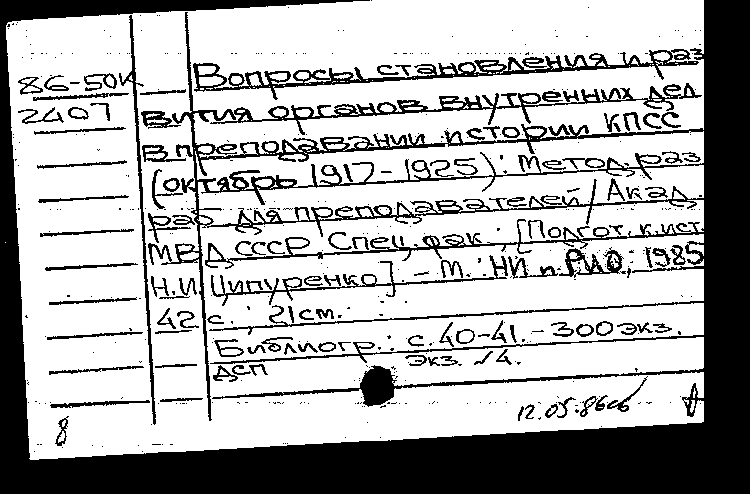 86-50к Вопросы становления и раз
2407 вития органов внутренних дел
в преподавании истории КПСС
(октябрь 1917-1925): Метод. раз
раб для преподавателей / Акад.
МВД СССР, Спец. фак.; [Подгот. к.ист.
Н.И. Ципуренко] - М.: НИ и РИО, 1985
42 с.; 21см.
Библиогр.: с.40-41. - 300экз.
дсп экз. √4.
12.05.86
8